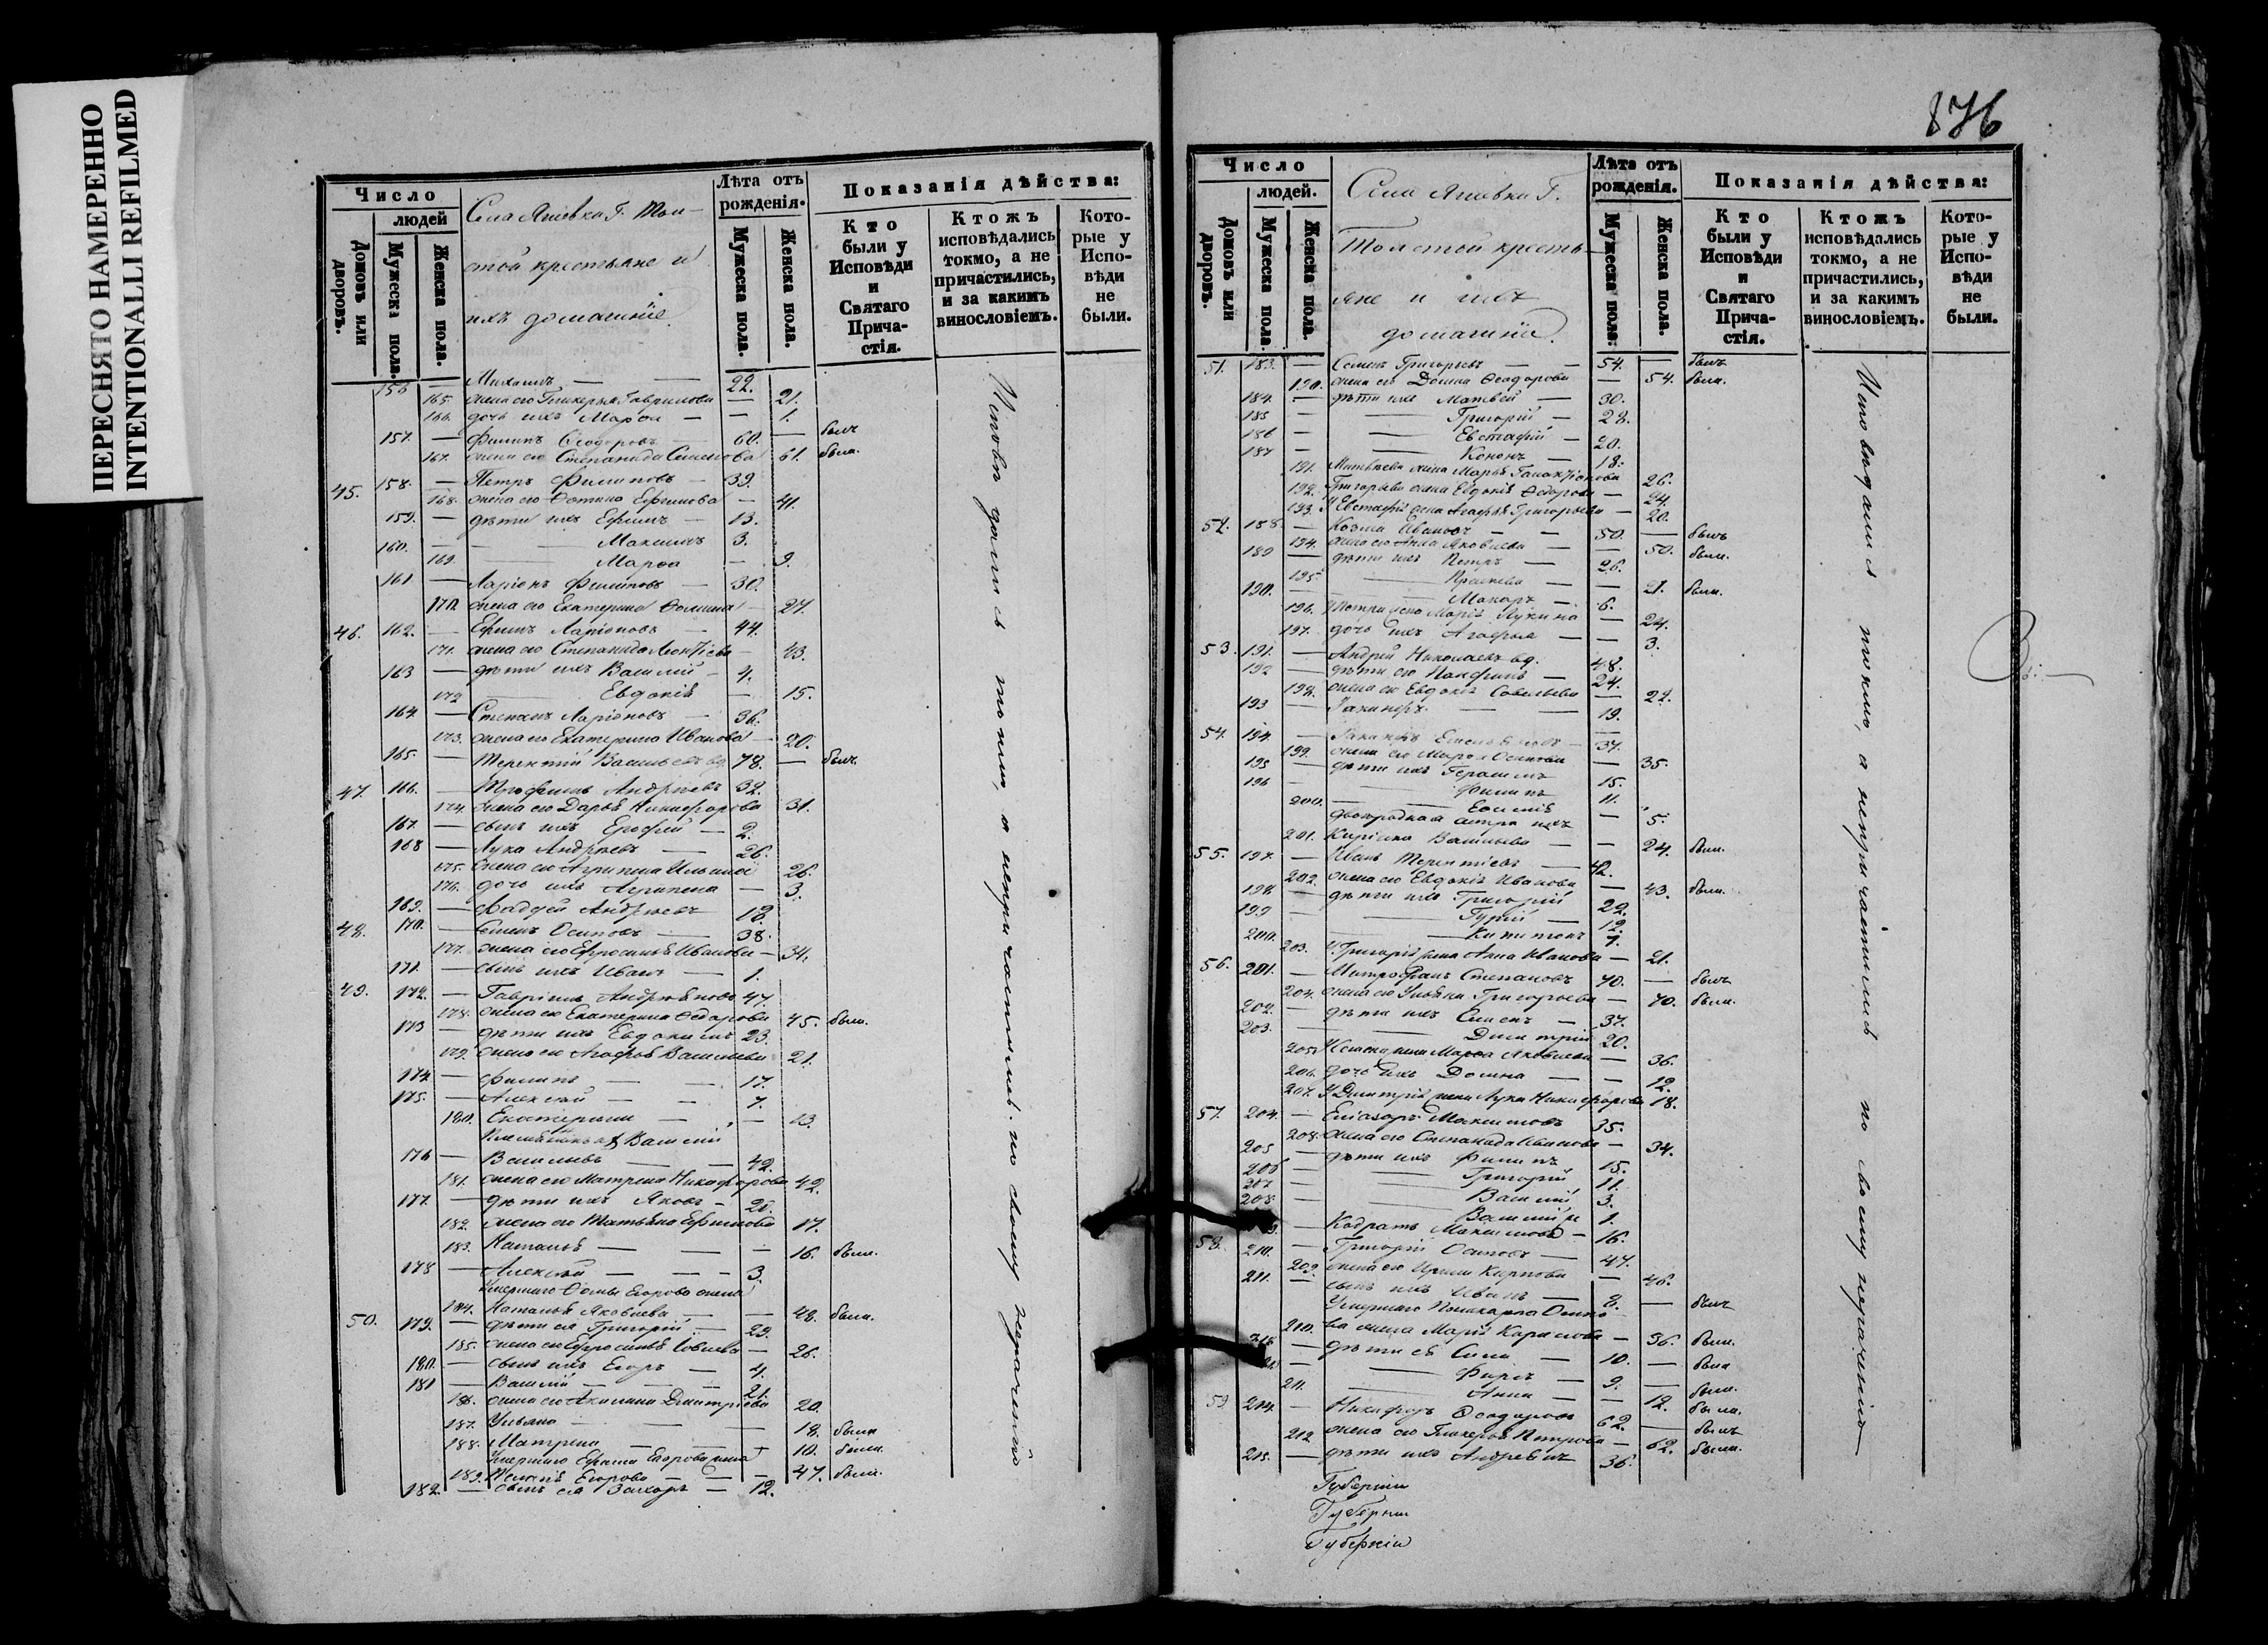 ПЕРЕСНЯТО НАМЕРЕННО
INTENTIONALLI REFILMED
Число
людей
Домовъ или дворовъ.
Мужеска пола.
Женска пола.
Села Г. Тол-
стой крестьяне и
ихъ домашніе
Лѣта отъ рожденія.
Мужеска пола.
Женска пола.
Показанія дѣйства:
Кто были у Исповѣди и Святаго Прича-стія.
Ктожъ исповѣдались токмо, а не причастились, и за какимъ винословіемъ.
Кото-рые у Испо-вѣди не были.
156 — Михаилъ — — 22.
165. жена его Гликерья Гаврилова — 21.
166. дочь ихъ Марѳа — — 1.
157. — Филипъ Ѳеодоровъ — 60. — былъ
167. жена его Степанида Семенова 61. была.
45. 158. — Петръ Филиповъ — 39.
168. жена его Ѳотина Ефимова — 41.
159. — дѣти ихъ Ефимъ — 13.
160. — Максимъ 3.
169. Марѳа — 9.
161 — Ларіонъ Филиповъ — 30.
170. жена его Екатерина Ѳомина — 27.
46. 162. — Ефимъ Ларіоновъ — 44.
171. жена его Степанида Леонтіева — 43.
163 — дѣти ихъ Василій — 4.
172 Евдокія — 15.
164. — Степанъ Ларіоновъ — 36.
173. жена его Екатерина Иванова — 20.
165. — Терентій Васильевъ вд. 78. — былъ
47. 166. — Трофимъ Андреевъ 32.
174. жена его Дарья Никифорова 31.
167. — сынъ ихъ Ерофей — 2.
168 — Лука Андреевъ — 26.
175. жена его Агрипена Ильина 26.
176. дочь ихъ Агрипена — 3.
169. — Фадей Андреевъ 18.
48. 170. — Семенъ Осиповъ — 38.
177. жена его Ефросинья Иванова — 34.
171. — сынъ ихъ Иванъ — 1.
49. 172. — Гавріилъ Андреяновъ 47.
178. жена его Екатерина Ѳедорова 45. была.
173 — дѣти ихъ Евдокимъ 23.
179. жена его Агафья Васильева 21.
174. — Филипъ — — 17.
175. — Алексѣй — — 7.
180. Екатерина — — 13.
Василій
176 — Васильевъ — — 42.
181. жена его Матрена Никифорова 42.
177. — дѣти ихъ Яковъ — 20.
182. жена его Татьяна Ефимова 17.
183. Наталья — — — 16. была.
178 — Алексѣй — — — 3.
Умершаго Ѳомы Егорова жена
184. Наталья Яковлева — — 48. была.
50. 179. — дѣти ея Григорій — 29.
185. жена его Ефросинья — 26.
180. — сынъ ихъ Егоръ — 4.
181 — Василій — — — 21.
186. жена его Акилина Дмитріева 20.
187. Ульяна — — — 18. была
188. Матрена — — — 10. была.
Умершаго Ефима Егорова жена
189. Егорова — — — 47. была.
182. — сынъ ея Захаръ — 12.
Исповѣдались токмо, а непричастились по своему нерачению
876
Число
людей.
Домовъ или дворовъ.
Мужеска пола.
Женска пола.
Села Г.
Толстой кресть-
яне и ихъ
домашніе.
Лѣта отъ рожденія.
Мужеска пола.
Женска пола.
Показанія дѣйства:
Кто были у Исповѣди и Святаго Прича-стія.
Ктожъ исповѣдались токмо, а не причастились, и за какимъ винословіемъ.
Кото-рые у Испо-вѣди не были.
51. 183. — Семенъ Григорьевъ — — 54. — былъ
190. жена его Домна Ѳеодорова — 54. была.
184. — дѣти ихъ Матвей — 30.
185 — Григорій — 28.
186 — Евстафій — 20.
187 — Кононъ — 18.
191. Матвѣева жена Марья 26.
192. Григорьева жена Евдокія Ѳедорова — 24.
193. У Евстафія жена Агафья Григорьева — 20.
52. 188 — Козма Ивановъ — — 50. — былъ
194. жена его Анна Яковлева — — 50. была.
189 — дѣти ихъ Петръ — 26.
195. — — 21. была.
190. — Макаръ — 6.
196. Петра жена Марія Лукина — 24.
197. дочь ихъ Агафья — — 3.
53. 191. — Андрей Николаевъ вд. 48.
192 — дѣти его Панфилъ — 24.
198. жена его Евдокія Савельева — 22.
193 — — 19.
54. 194. — 37.
199. жена его Марѳа Осипова — 35.
195 — дѣти ихъ Герасимъ 15.
196 — Филипъ 11.
200. — — 5.
двоюродная сестра ихъ
201. Васильева — — 24. была.
55. 197. — Иванъ Терентіевъ — 42.
202. жена его Евдокія Иванова — 43. была.
198. — дѣти ихъ Григорій 22.
199 — Гурій — 12.
200. — 7.
203. У Григорія жена Анна Иванова — 21.
56. 201. — Митрофанъ Степановъ 70. — былъ
204. жена его Ульяна Григорьева — 70. была.
202. — дѣти ихъ Семенъ — 37.
203. — Дмитрій 20.
205. У Семена жена Марѳа Яковлева — 36.
206. дочь ихъ Домна — — 12.
207. У Дмитрія жена Никифорова 18.
57. 204. — Еліазаръ Максимовъ 35.
208. жена его Степанида Иванова — 34.
205 — дѣти ихъ Филипъ 15.
206 — Григорій 11.
207 — Василій 3.
208 — Василій 1.
— Кодратъ Максимовъ — 16.
58. 210. — Григорій Осиповъ — 47.
209. жена его Ирина Карпова — 46.
211. — сынъ ихъ Иванъ — 8. — былъ
Умершаго Поликарпа Осипо-
210. ва жена Марія — 56. была.
212 — дѣти ея Сила — 10. — была
— Фирсъ — 9.
211. Анна — — 12. была.
59 214. — Никифоръ Ѳеодоровъ 62. — былъ
212 жена его Гликерья Петрова — 62. была.
215. — дѣти ихъ Андреянъ 36.
Исповѣдались токмо, а непричастились по своему нерачению
Губернии
Губернии
Губерніи